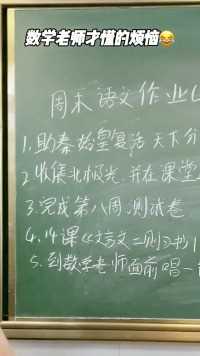 数学老师才懂的烦恼😂
周末语文作业
1.助秦始皇复活 天下分
2.收集北极光,并在课堂
3.完成第八周测试卷
4.14课《文言文二则》书
5.到数学老师面前唱一